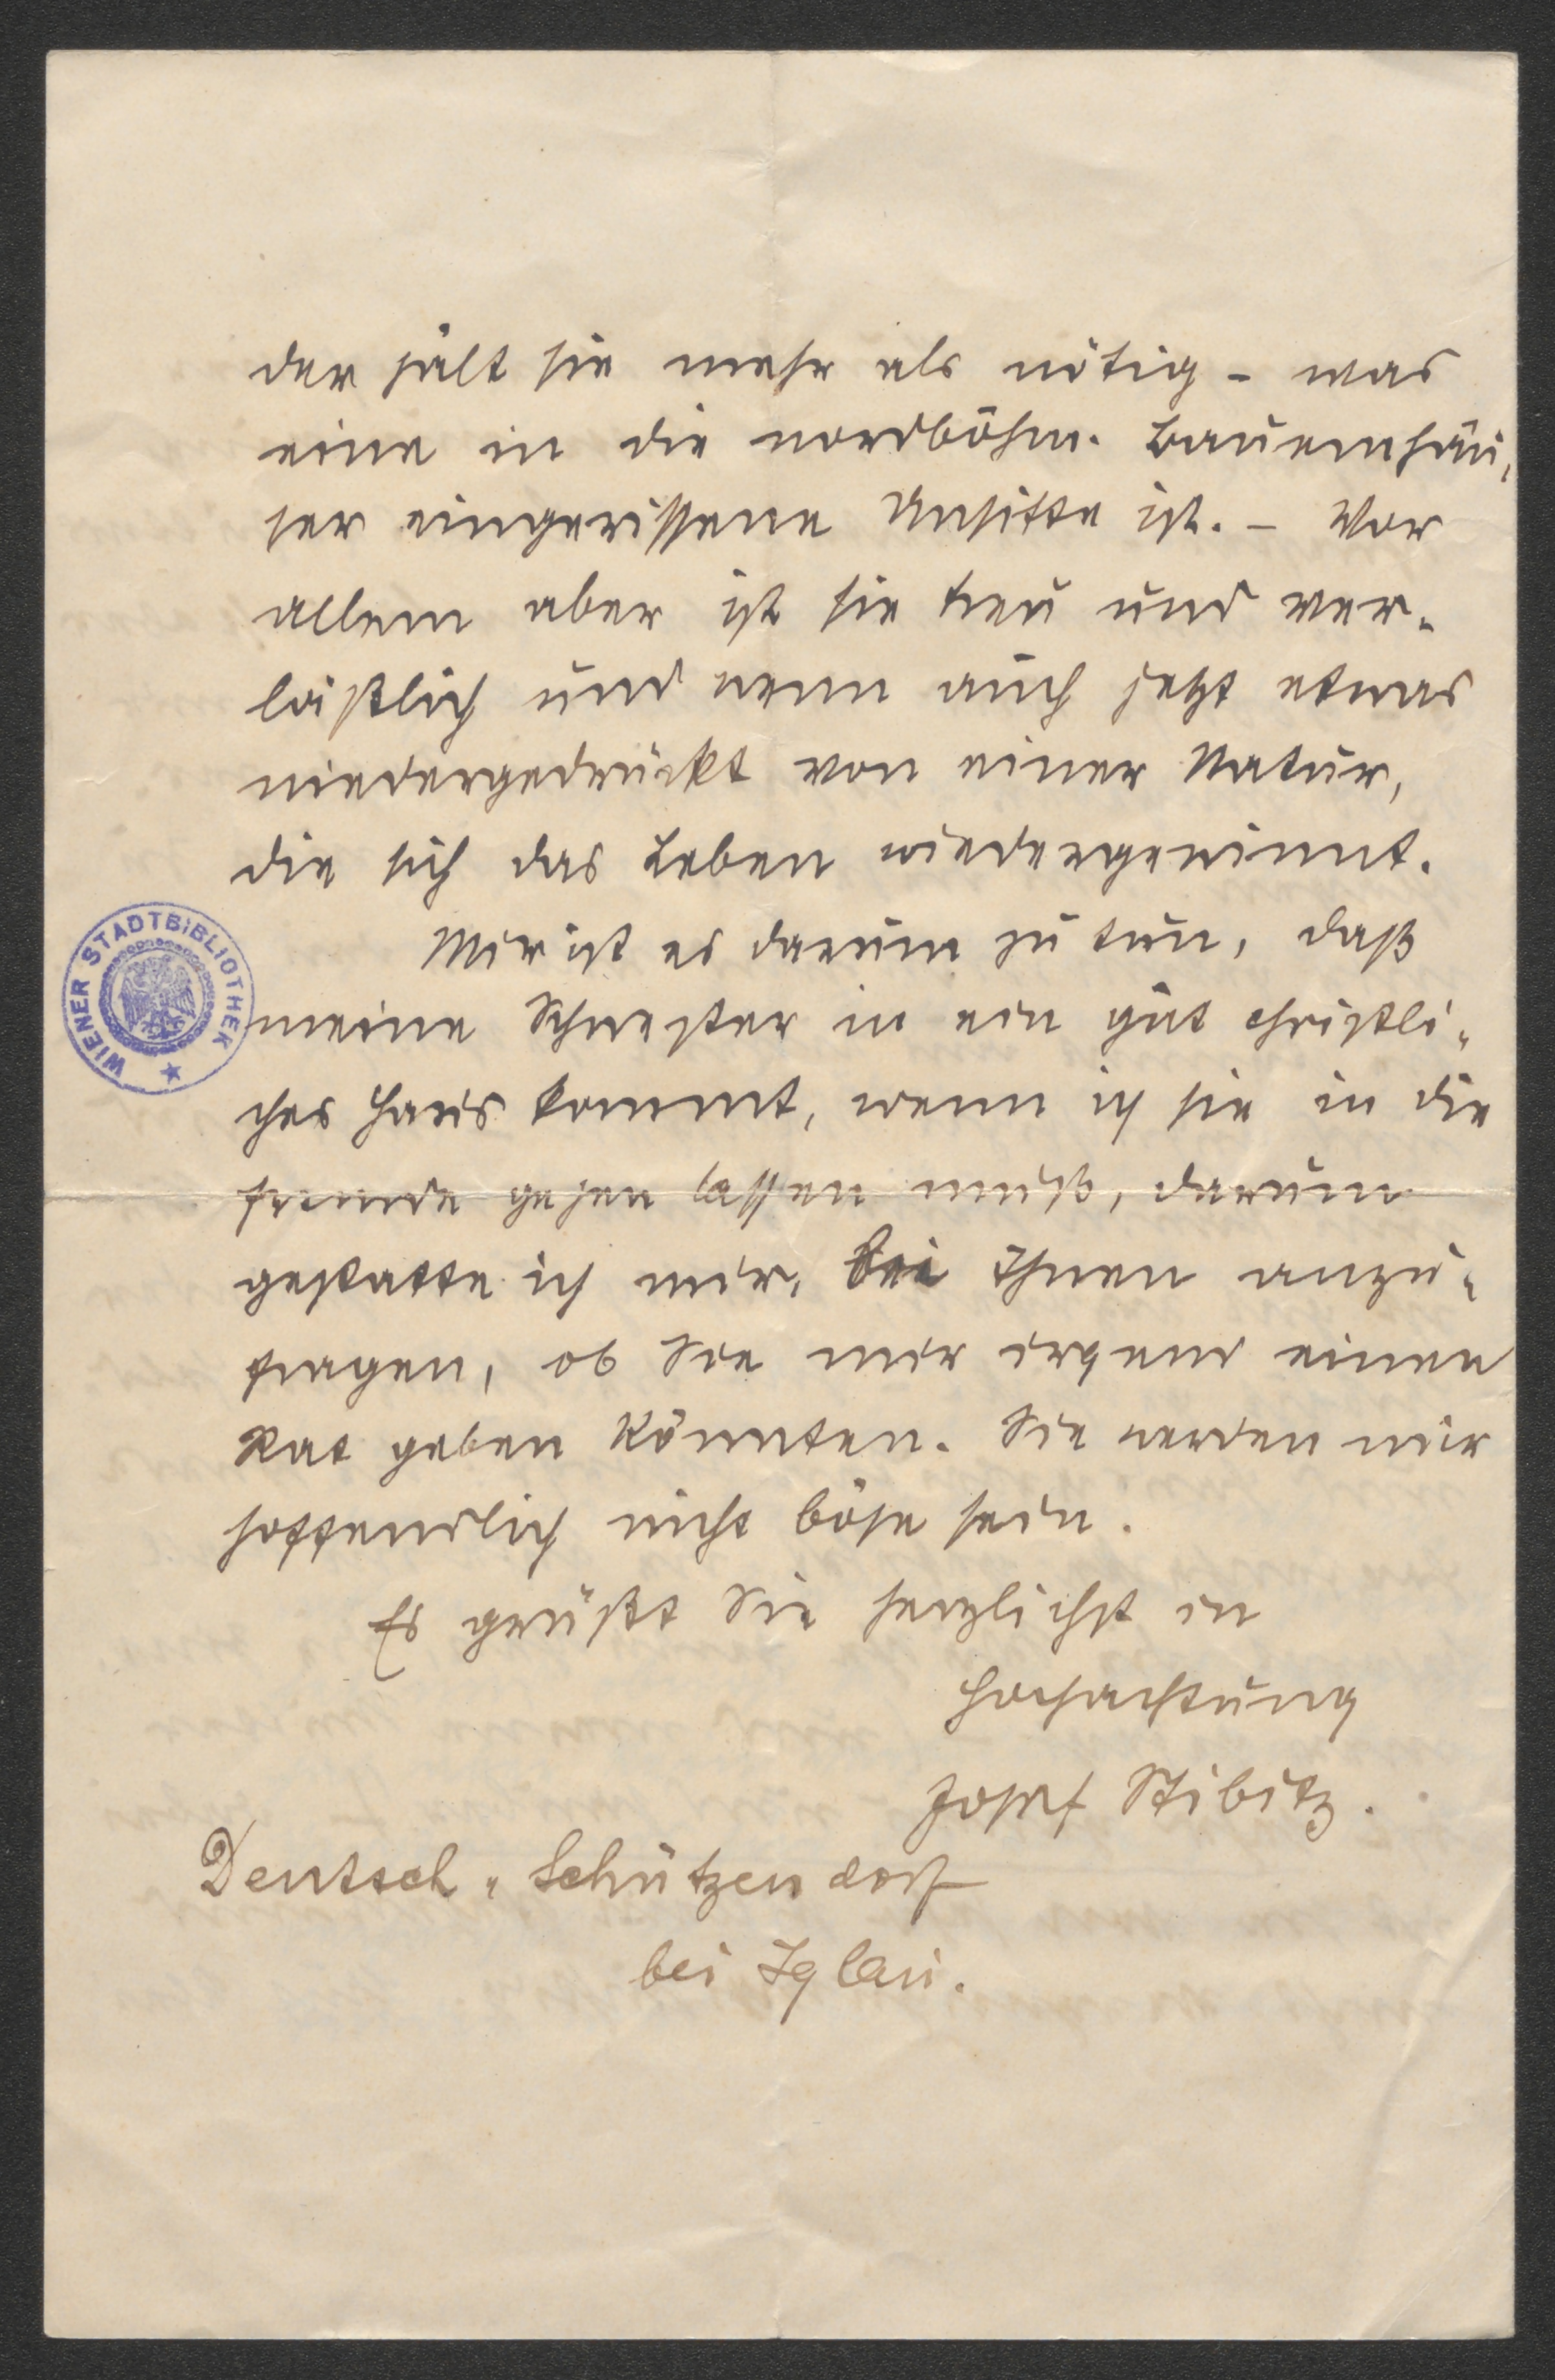 der hält sie mehr als nötig – was
eine in die nordböhm. Bauernhäu-
ser eingerissene Unsitte ist. – Vor
allem aber ist sie treu und ver-
läßlich und wenn auch jetzt etwas
niedergedrückt von einer Natur,
die sich das Leben wiedergewinnt.
Mir ist es darum zu tun, daß
meine Schwester in ein gut christli-
ches Haus kommt, wenn ich sie in die
Fremde gehen lassen muß, darum
gestatte ich mir, bei Ihnen anzu-
fragen, ob Sie mir irgend einen
Rat geben könnten. Sie werden mir
hoffendlich nicht böse sein.
Es grüßt Sie herzlichst in
Hochachtung
Josef Stibitz.
Deutsch-Schützendorf
bei Iglau.
WIENER STADTBIBLIOTHEK